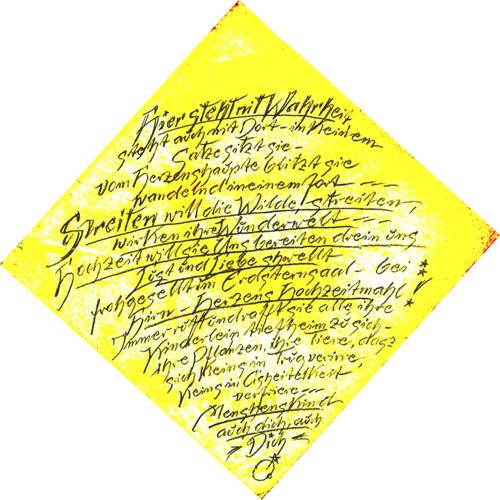 Hier steht mit Wahrheit,
steht auch mit Dort – in Keinem
Satze sitzt sie –
vom Herzenshaupte blitzt sie
wandelnd in einem fort – – –
Streiten will die Wilde, streiten,
wirken ihre Wunderwelt – – –
Hochzeit will die uns bereiten drein uns
Lust und Liebe schwellt
frohgesellt im Erdsternsaal – bei
ihrm Herzens Hochzeitmahl!
Immer ruft und rafft sie alle ihre
Kinderlein tief heim zu sich –
ihre Pflanzen, ihre Tiere, dasz
sich Keins in Trug verirre,
Keins in Eisheitelkeit
verfriere – – –
Menschenskind
auch dich, auch
Dich